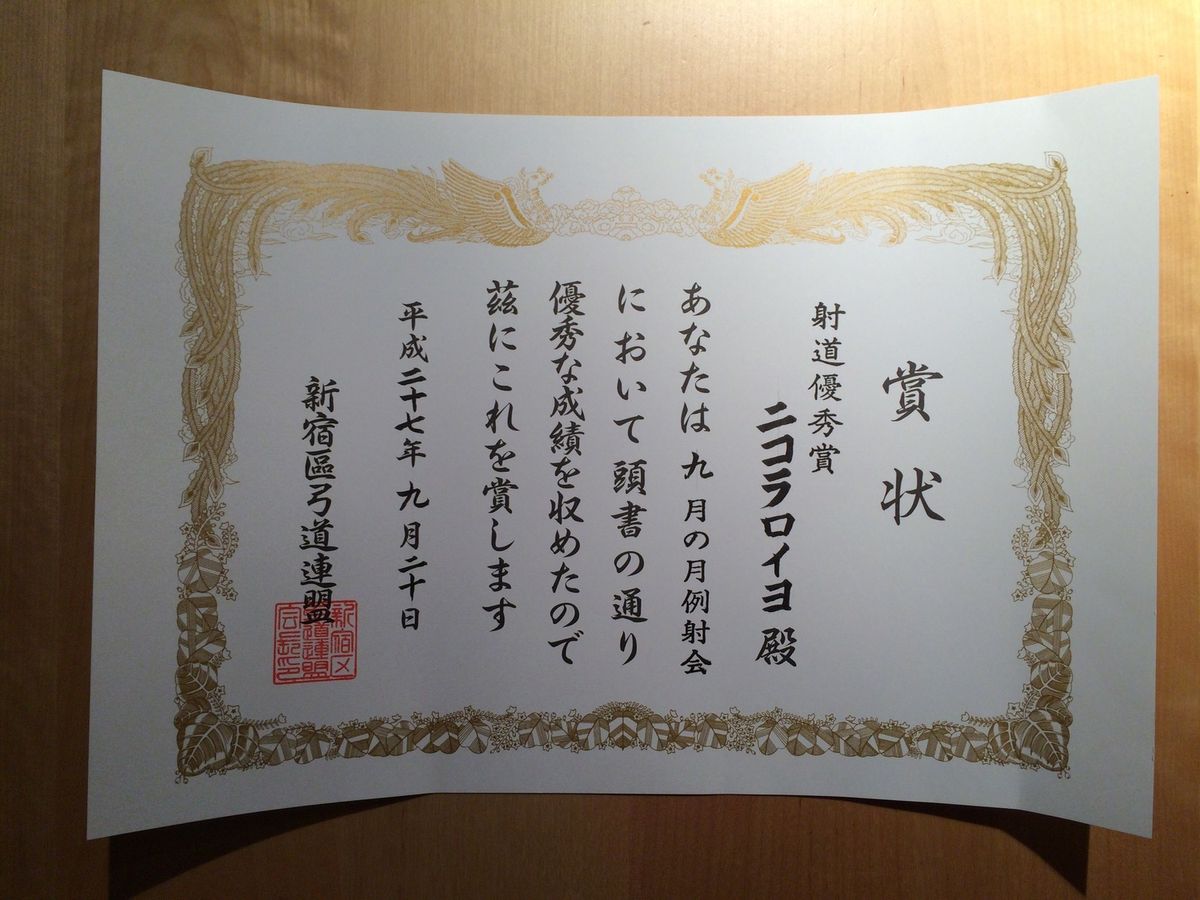 賞状
射道優秀賞
ニコラロイヨ殿
あなたは九月の月例射会
において頭書の通り
優秀な成績を収めたので
茲にこれを賞します
平成二十七年九月二十日
新宿區弓道連盟
新宿区
弓道連盟
会長印